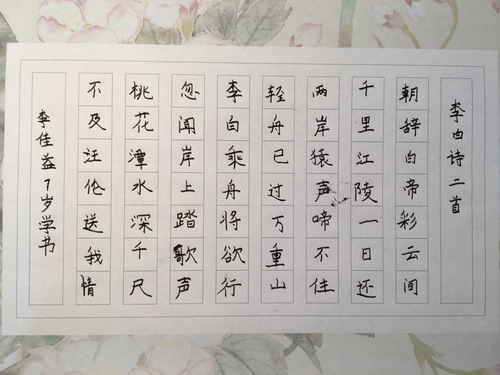 李白诗二首
朝辞白帝彩云间
千里江陵一日还
两岸猿声啼不住
轻舟已过万重山
李白乘舟将欲行
忽闻岸上踏歌声
桃花潭水深千尺
不及汪伦送我情
李佳益7岁学书